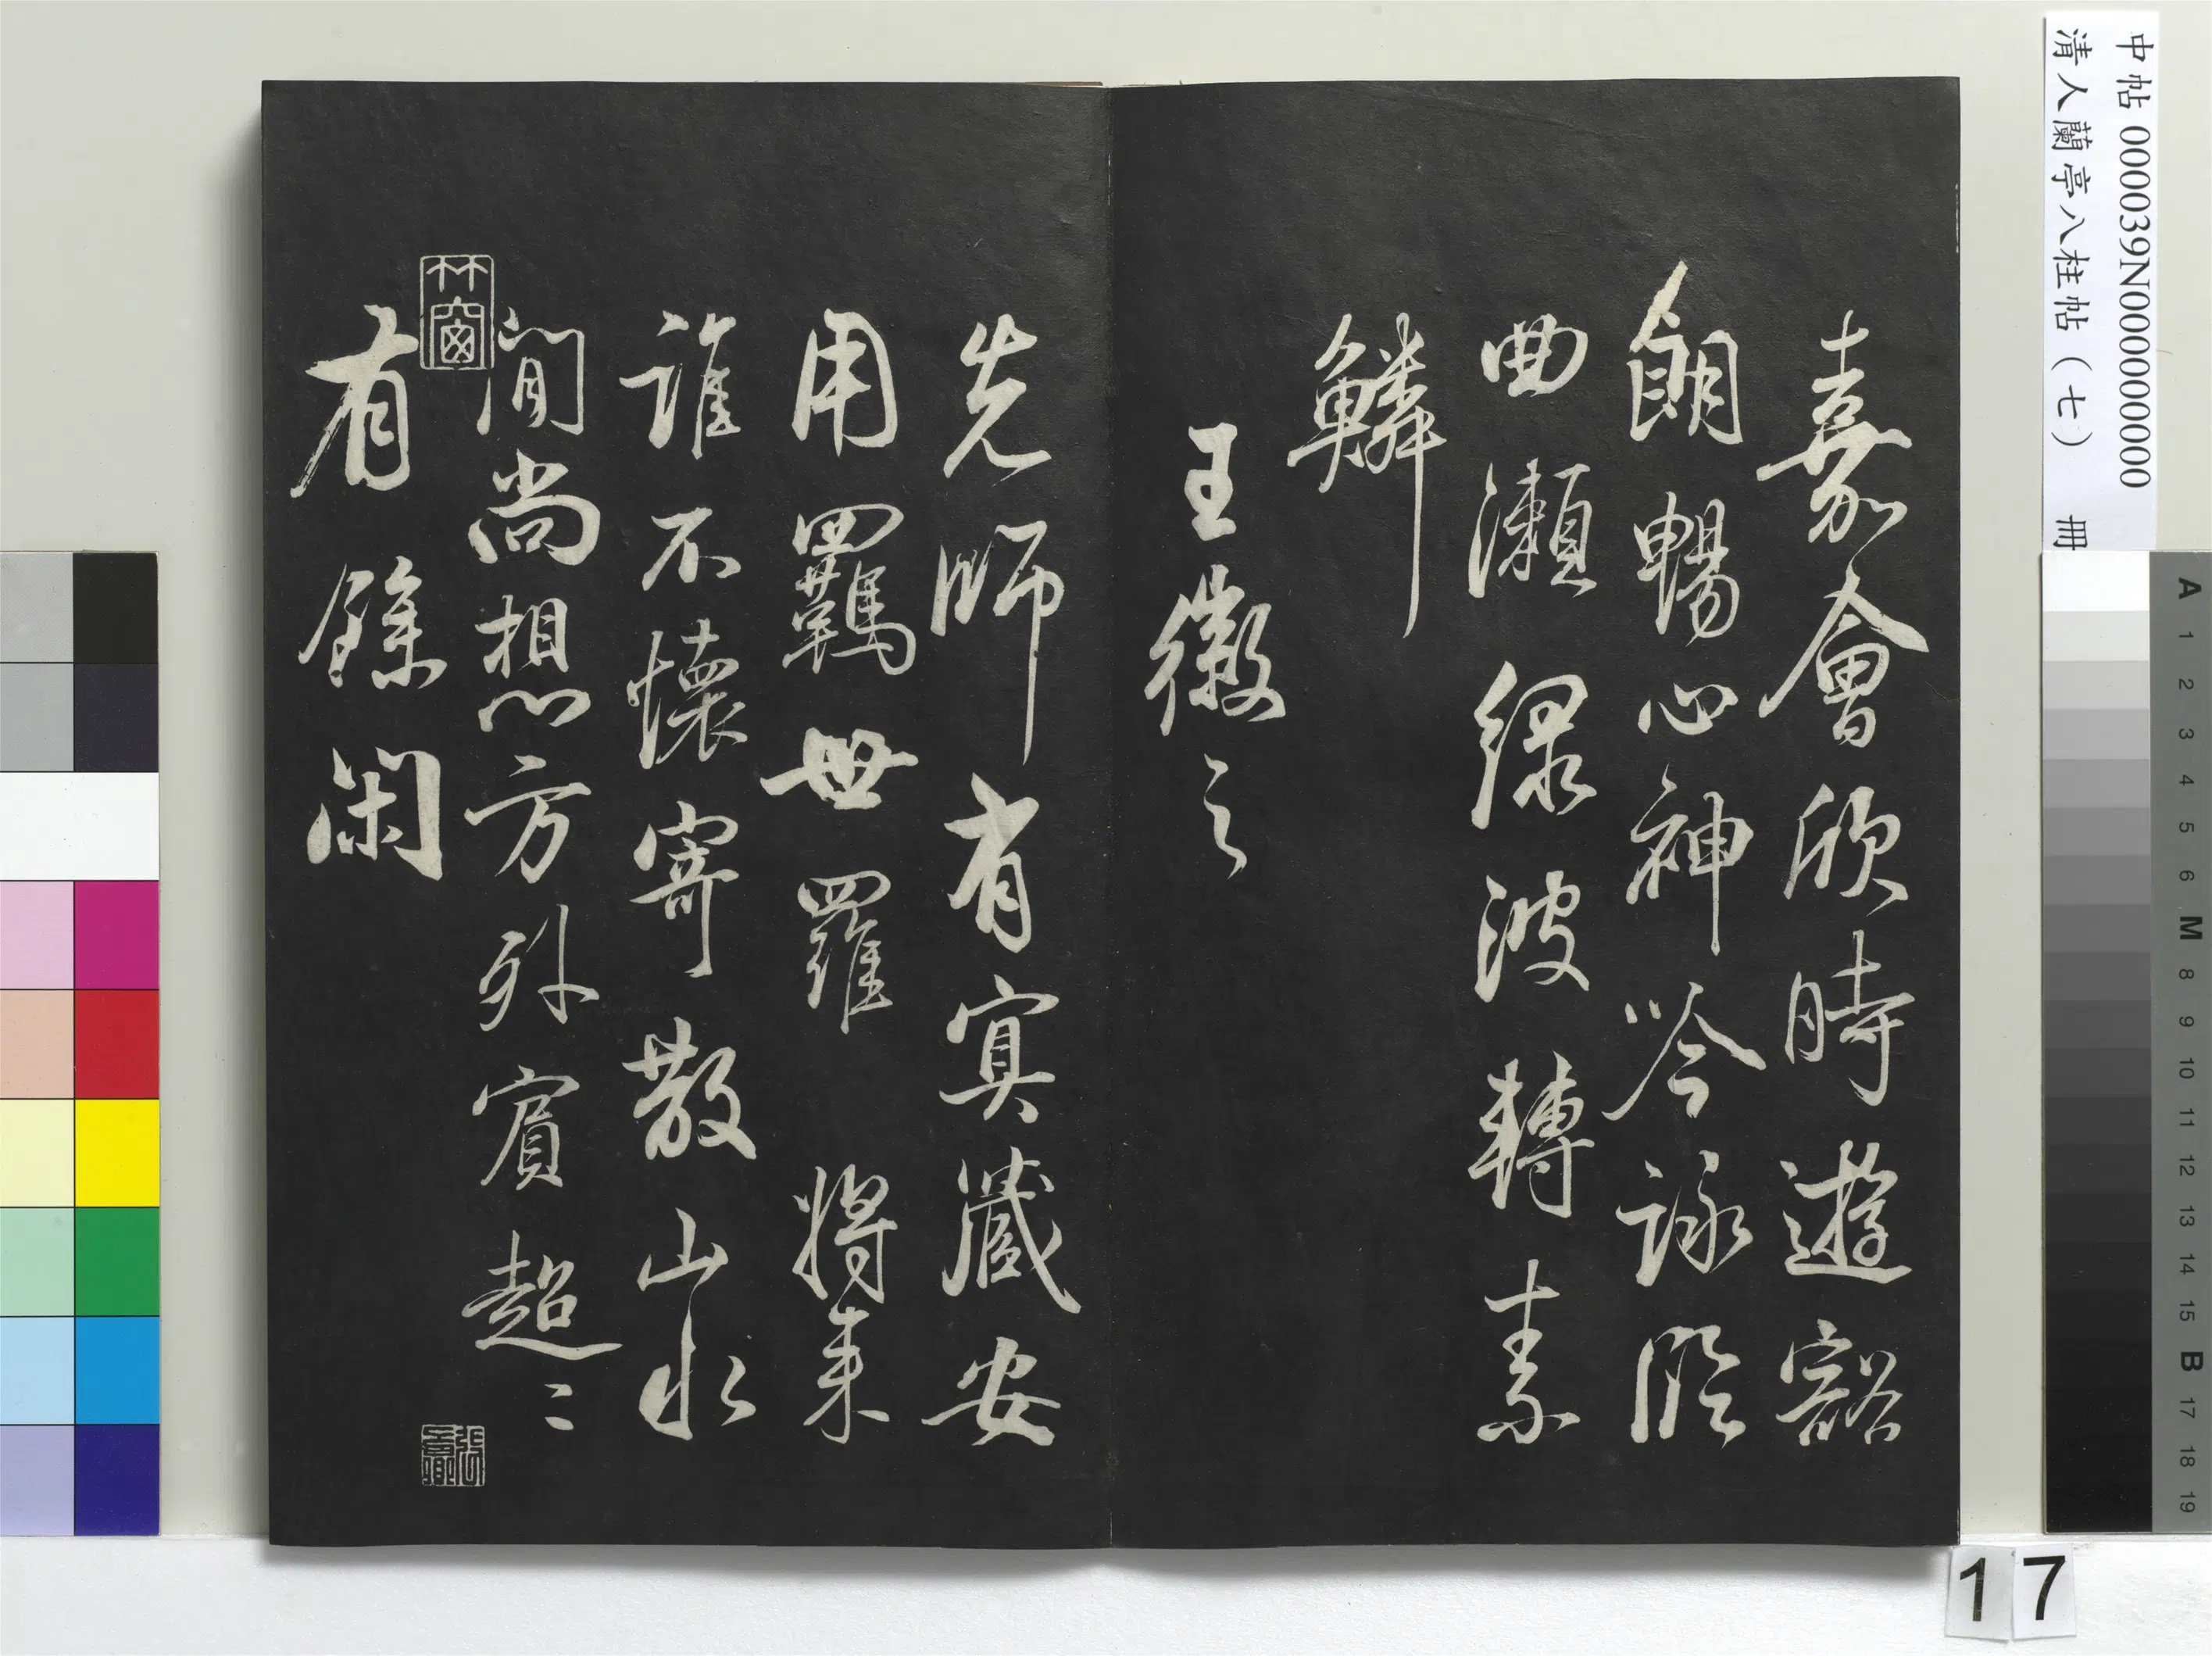 嘉會欣時遊豁
朗暢心神吟詠曲
曲瀨緑波轉素
鱗
王徽之
先師有冥藏安
用羈世羅將來
誰不懷寄散山水
閒尚想方外賓超〻
有餘閑
竹窗
中帖 000039N000000000
清人蘭亭八柱帖(七) 冊
A 1 2 3 4 5 6 M 8 9 10 11 12 13 14 15 B 17 18 19
17